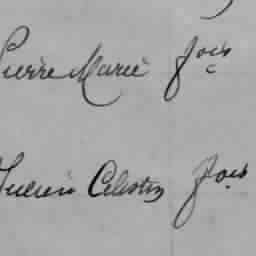 Pierre Marie fois
Lucien Celestin fois